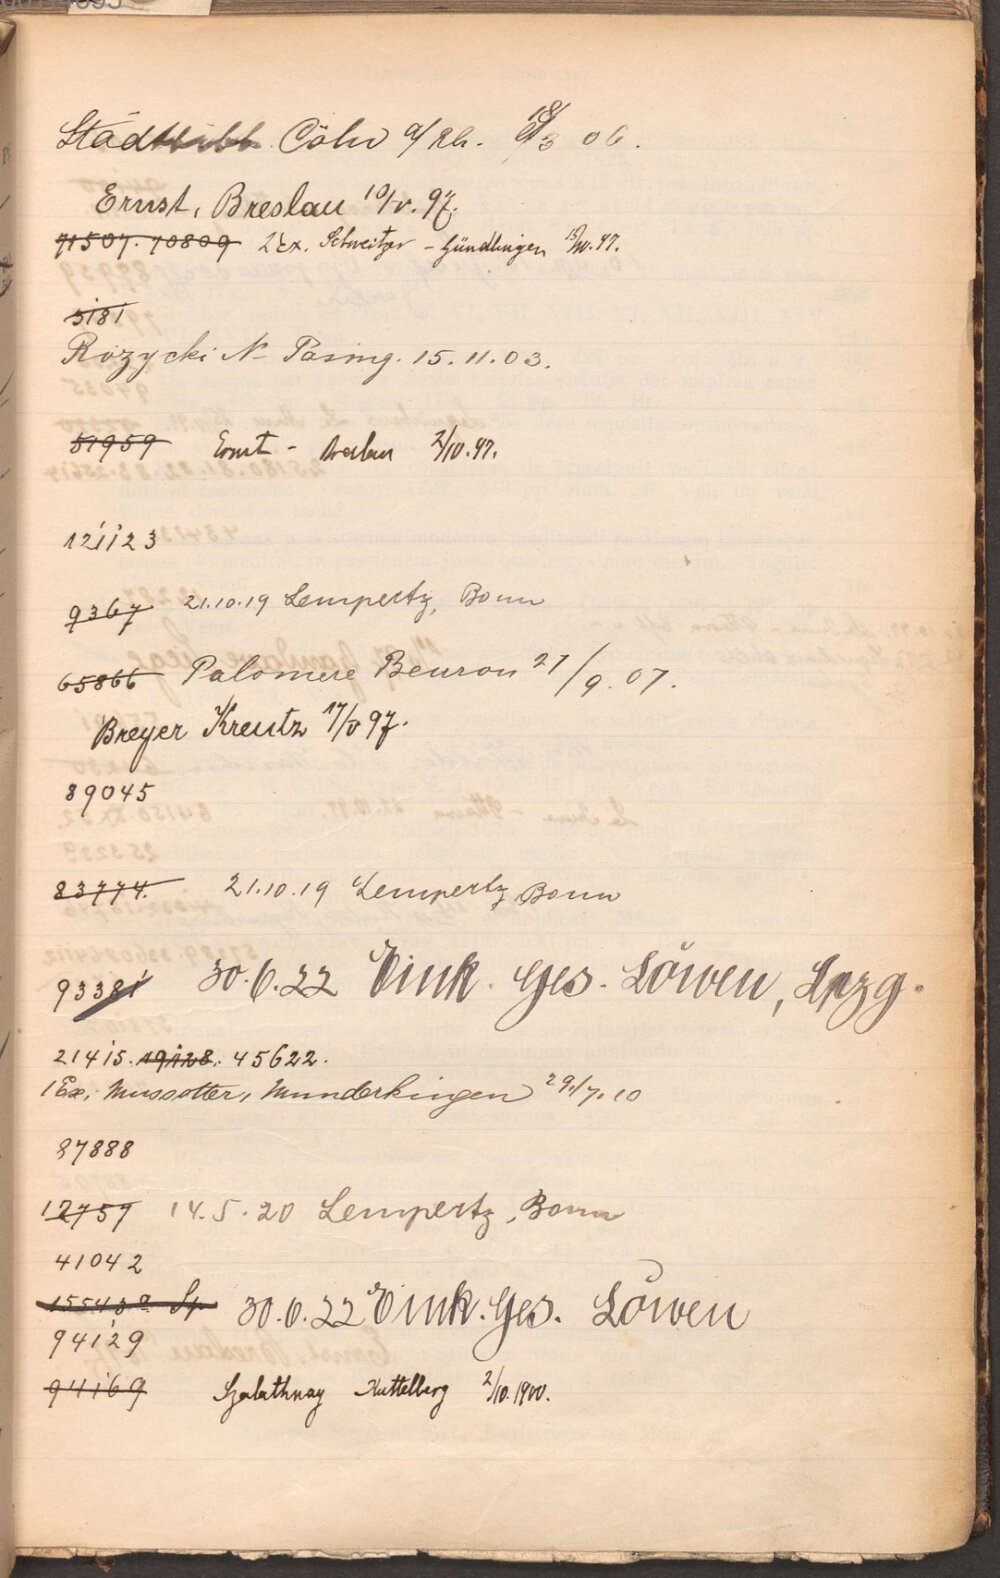 Stadtbibl. Cöln a/Rh. 18/3 06.
Ernst, Breslau 10/V. 97.
71507. 70809 2 Ex. Schweitzer - Gündlingen 15/XI. 97.
5181
Rozycki N- Pasing. 15.11.03.
51959 Ernst - Breslau 2/10.97.
121123
9367 21.10.19 Lempertz, Bonn
65866 Palomere Beuron 27/9.07.
Breyer Kreutz 17/V 97.
89045
83774. 21.10.19 Lempertz Bonn
93381 30.6.22 Eink. Ges. Löwen, Lpzg.
21415. 19128. 45622.
1 Ex. Mussotter, Munderkingen 29./7.10
87888
12759 14.5.20 Lempertz, Bonn
41042
30.6.22 Eink. Ges. Löwen
94129
94169 Szalathnay Kuttelberg 2/10.1900.